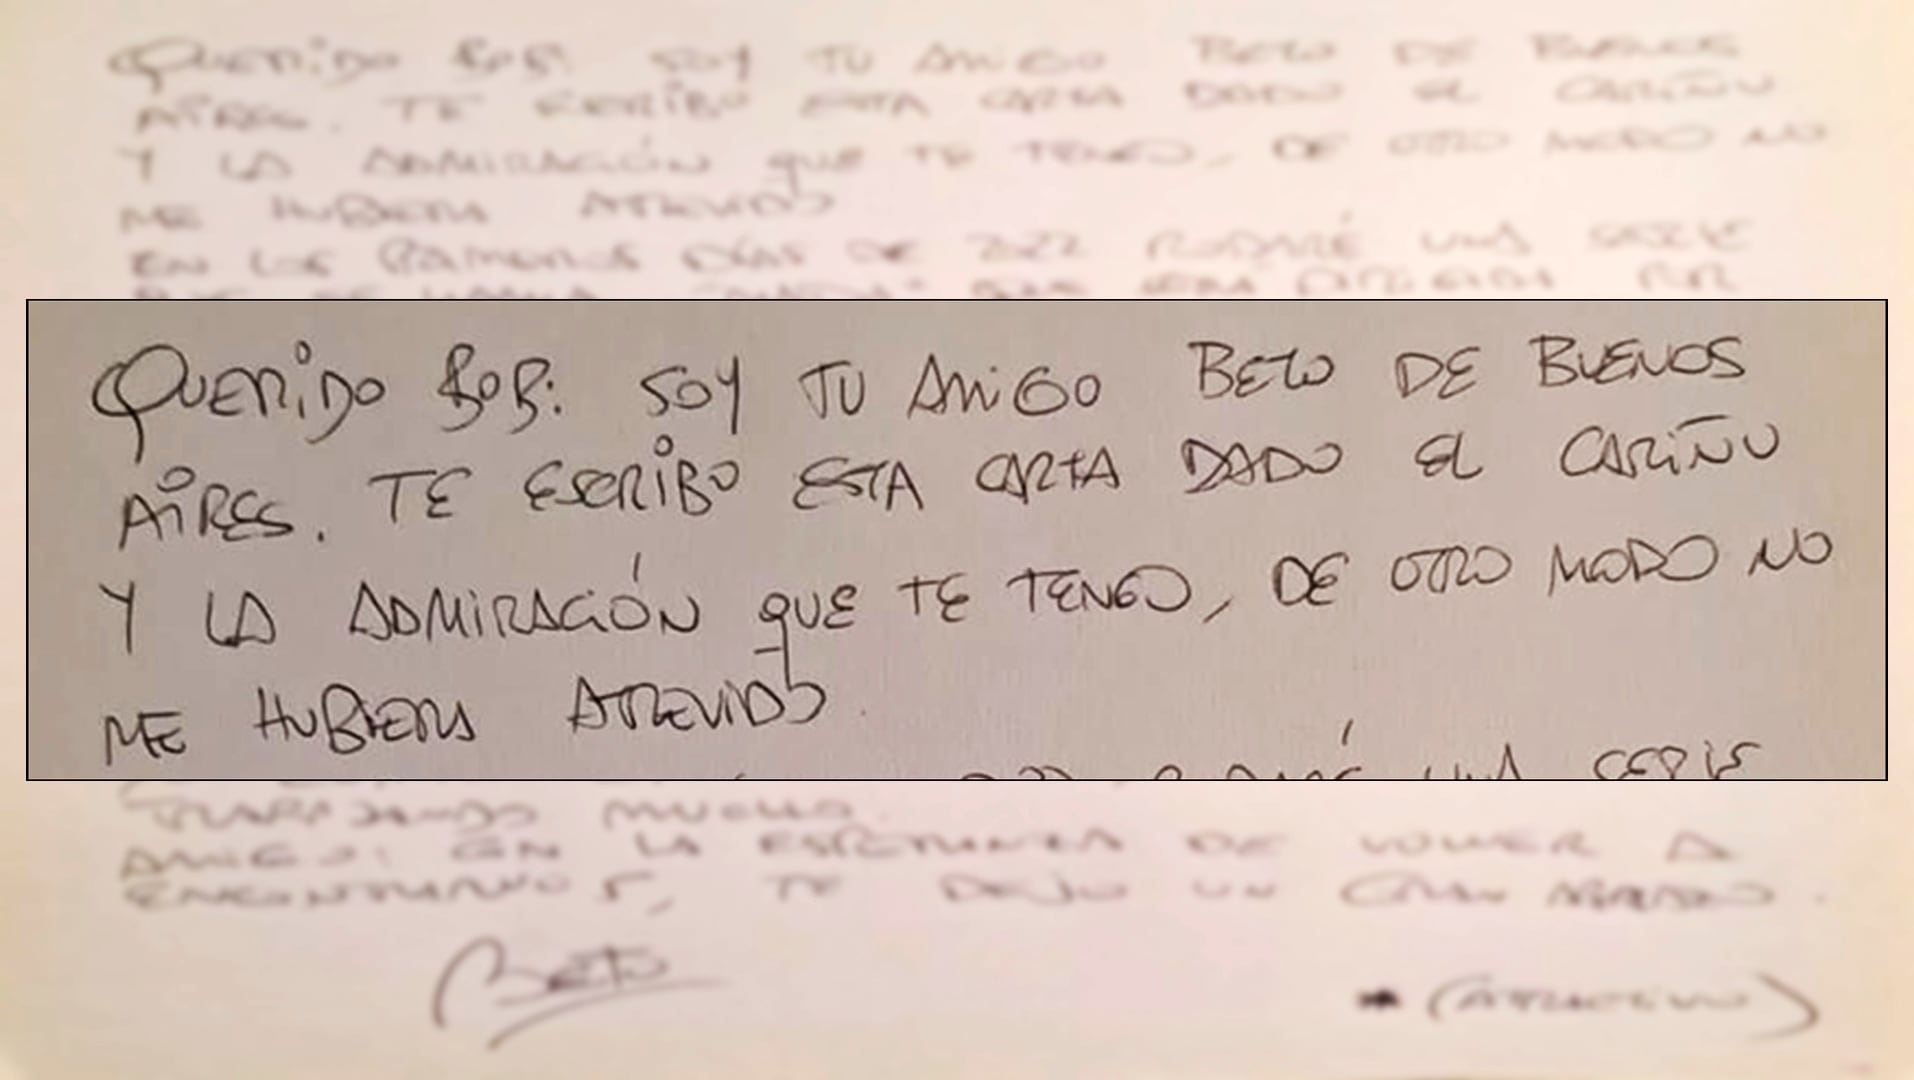 Querido Bob: soy tu amigo Beto de Buenos
Aires. Te escribo esta carta dado el cariño
y la admiración que te tengo, de otro modo no
me hubiera atrevido
En los primeros días de 2022 rodaré una serie
amigo: en la esperanza de volver a
encontrarnos, te dejo un gran abrazo.
Beto